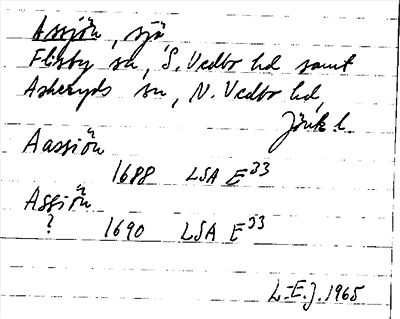 Assjön, sjö
Flisby sn, S. Vedbo hd samt
Askeryds sn, N. Vedbo hd,
Jönk. l.
Aassiön
1688 LSA E33
Assiön
? 1690 LSA E33
L-E.J. 1965